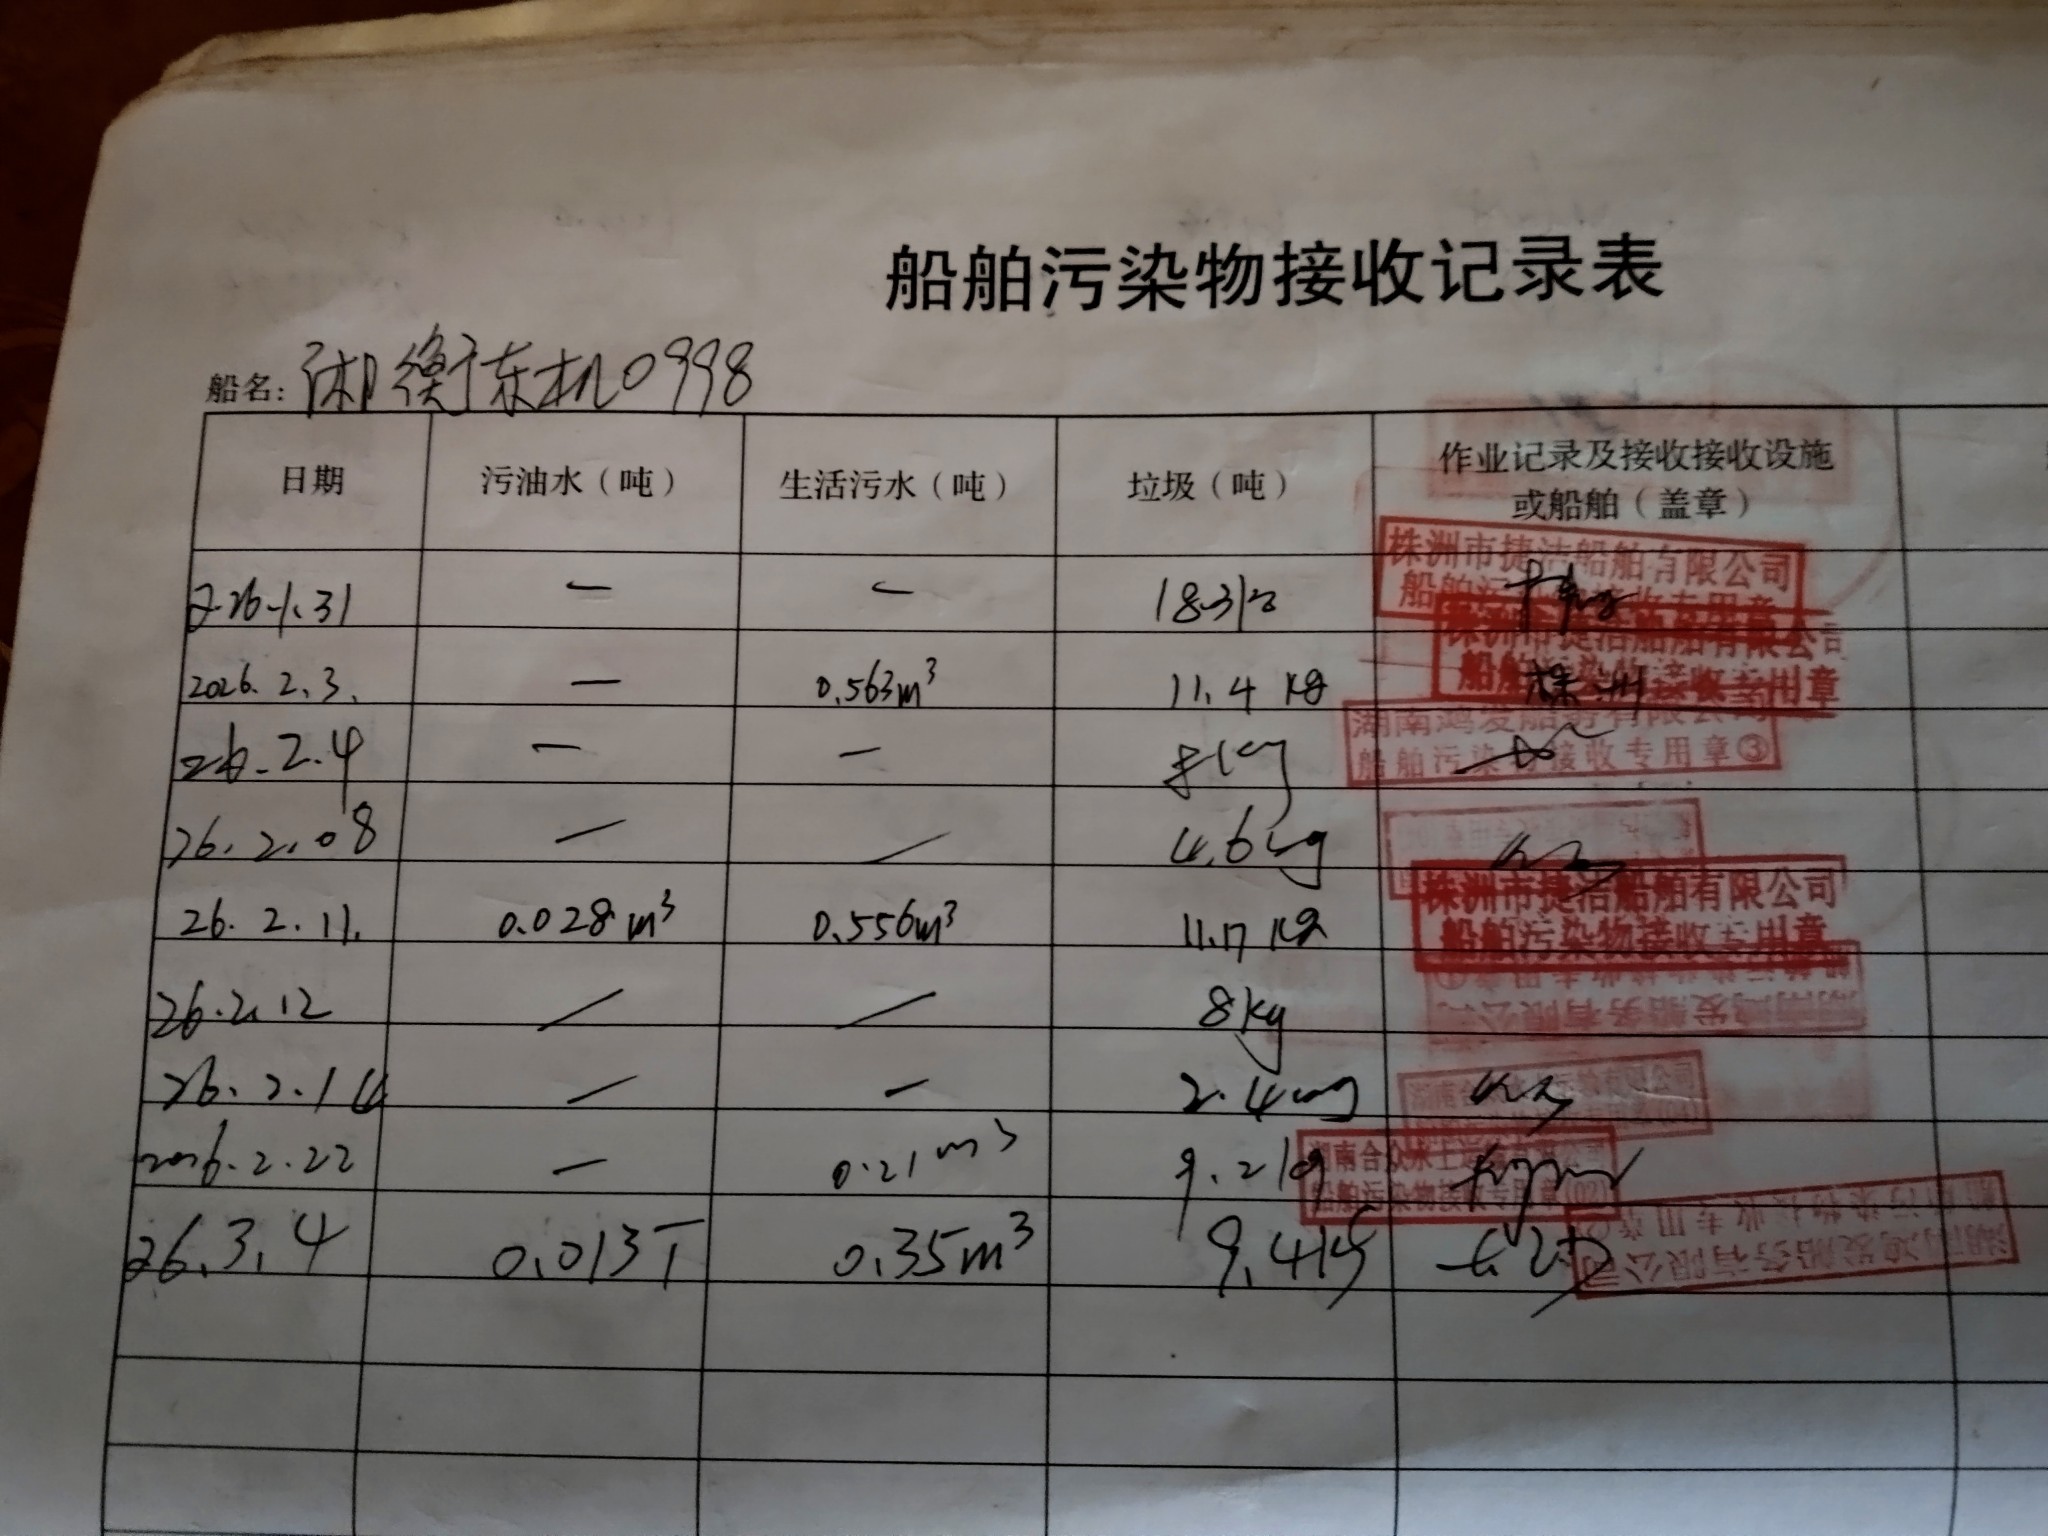 船舶污染物接收记录表
船名: 湘衡东机0998
日期 污油水（吨） 生活污水（吨） 垃圾（吨） 作业记录及接收接收设施
或船舶（盖章）
株洲市捷洁船舶有限公司
2026.1.31 — — 18.3kg
株洲市捷洁船舶有限公司
船舶污染物接收专用章
2026.2.3. — 0.563m³ 11.4 kg 株洲
湖南鸿发船务有限公司
船舶污染物接收专用章③
26.2.4 — — 8kg
26.2.08 — — 4.6kg
株洲市捷洁船舶有限公司
船舶污染物接收专用章
26.2.11. 0.028m³ 0.556m³ 11.17 kg
湖南鸿发船务有限公司
26.2.12 / / 8kg
26.2.14 / — 2.4kg
湖南合众水上
船舶污染物接收专用章(02)
2026.2.22 — 0.21m³ 9.2kg
湖南鸿发船务有限公司
船舶污染物接收专用章
26.3.4 0.013T 0.35m³ 9.4kg